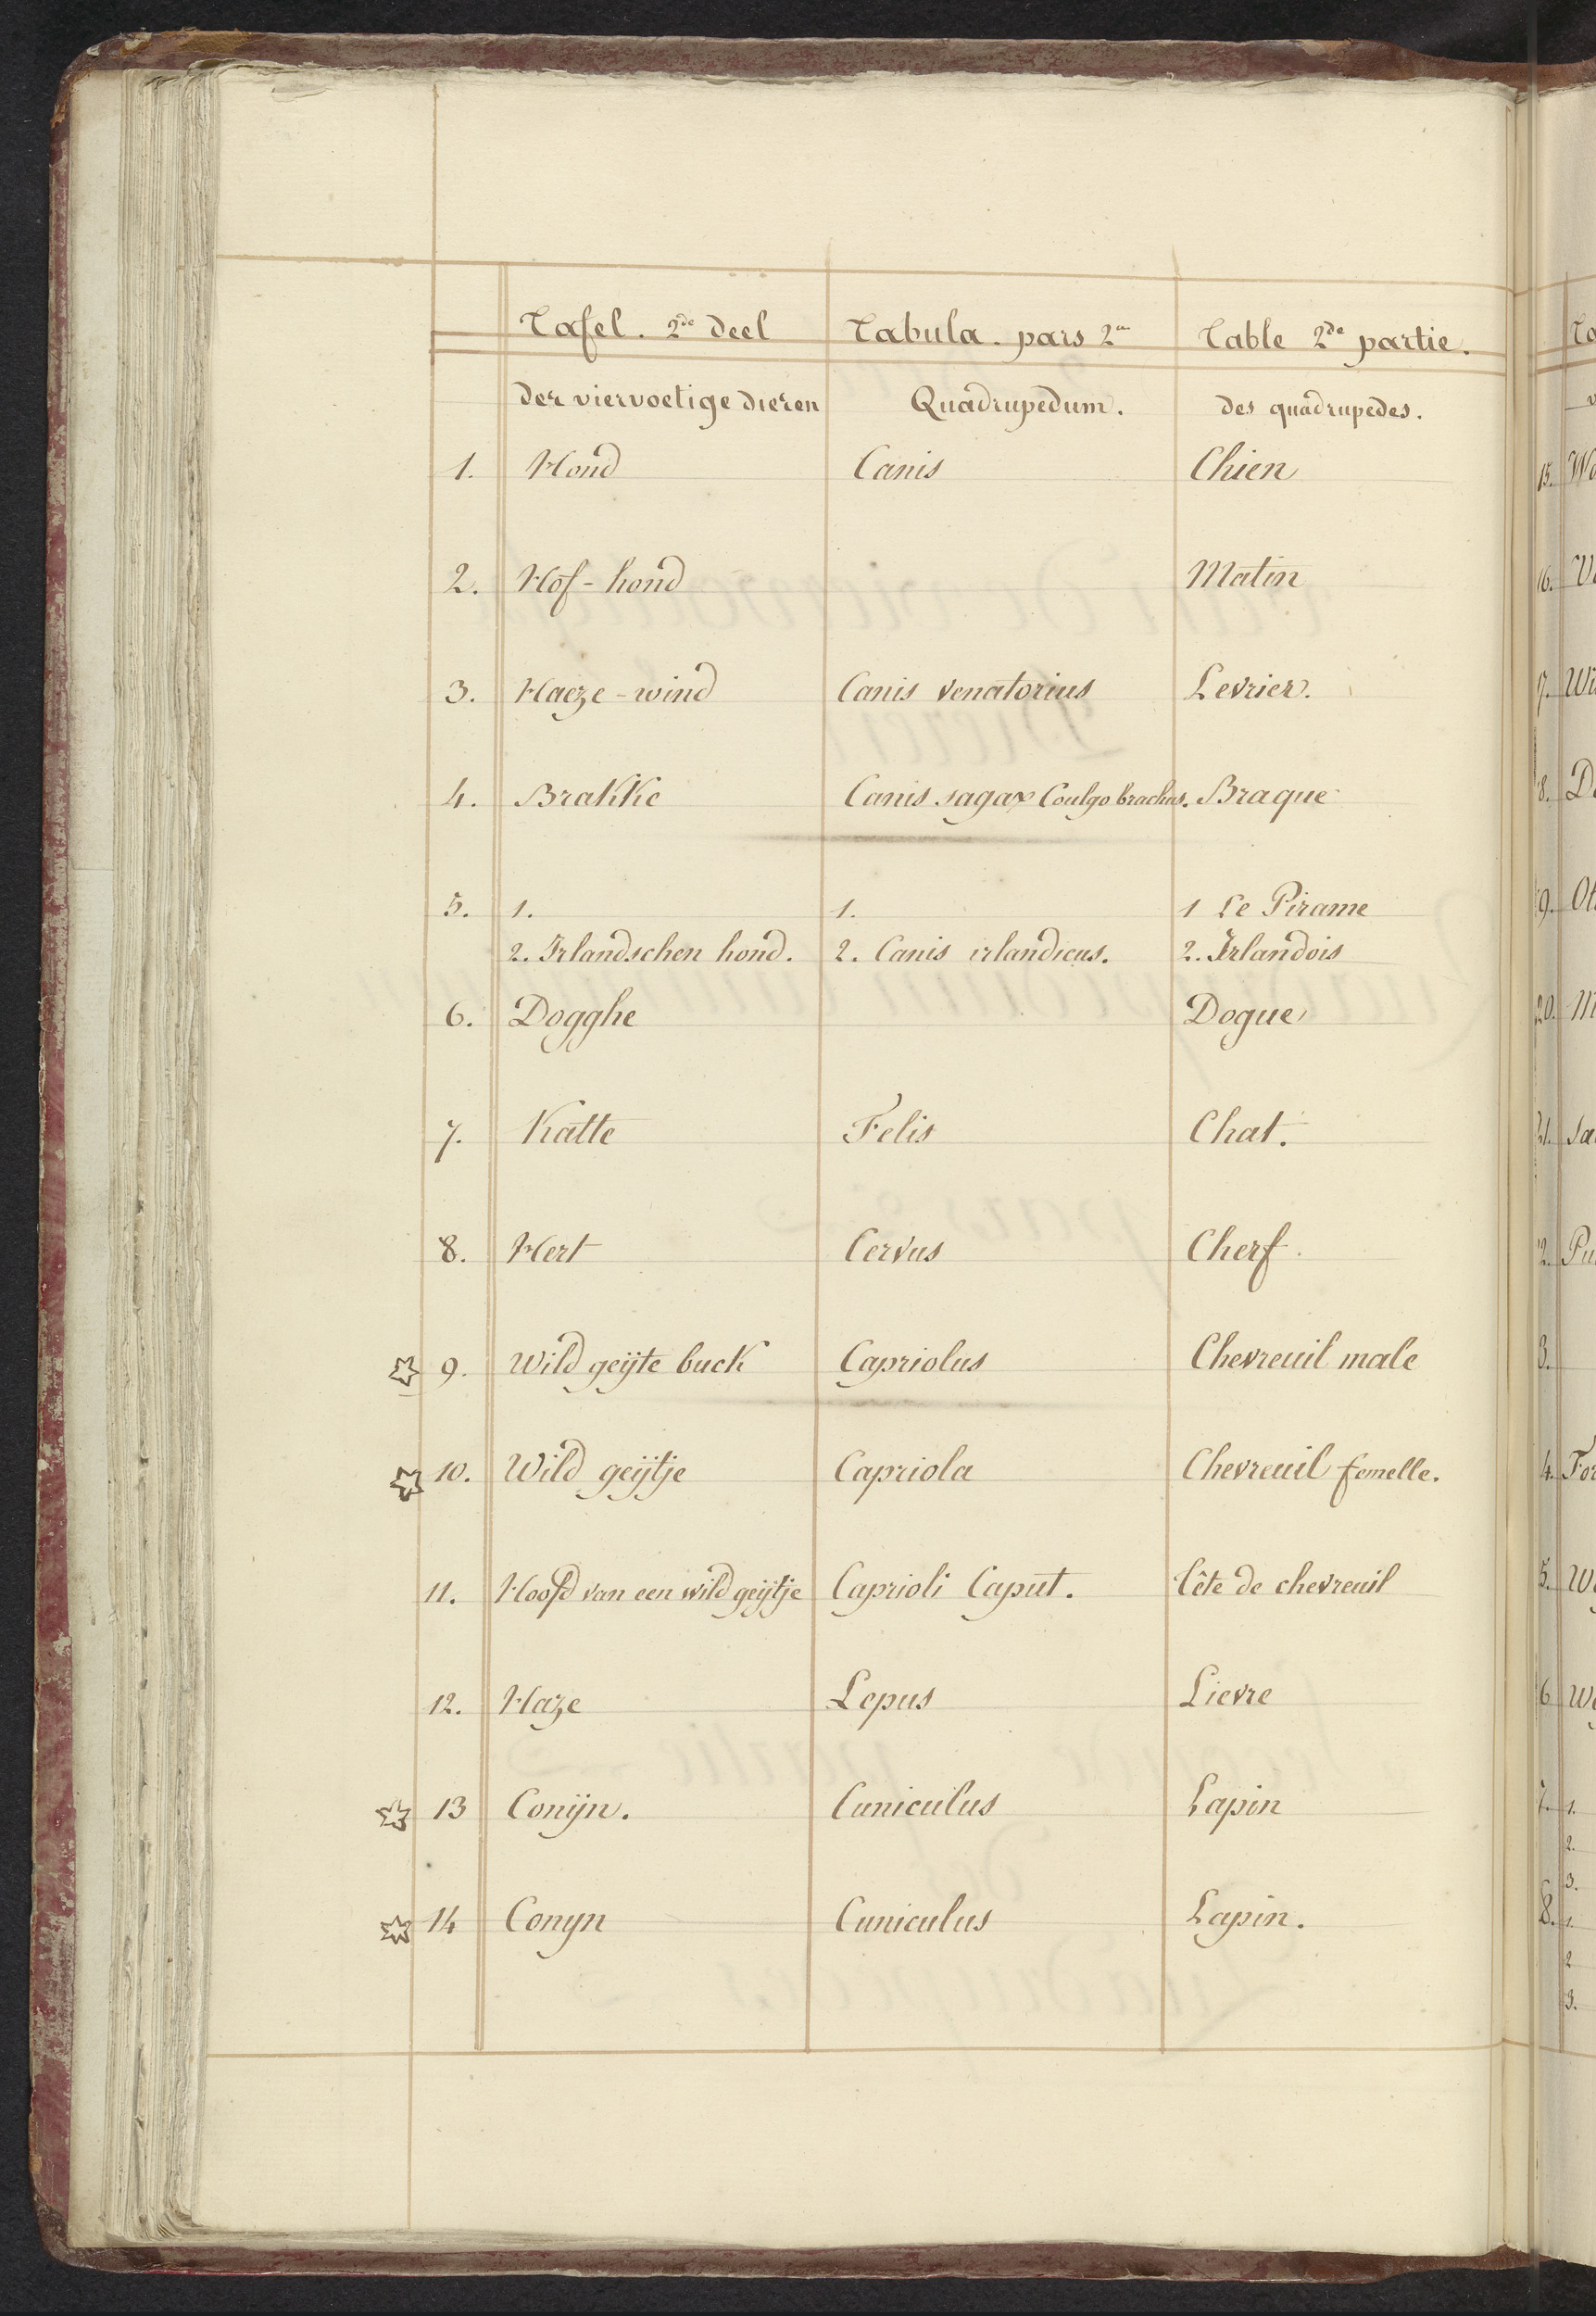 Tafel. 2de deel Tabula. pars 2a Table 2de partie.
der viervoetige dieren Quadrupedum. des quadrupedes.
1. Hond Canis Chien
2. Hof-hond Matin
3. Haeze-wind Canis venatorius Levrier.
4. Brakke Canis sagax Coulgo brachus. Braque
5. 1. 1. 1 Le Pirame
2. Irlandschen hond. 2. Canis irlandicus. 2. Irlandois
6. Dogghe Dogue
7. Katte Felis Chat.
8. Hert Cervus Cherf.
9. Wild geijte buck Capriolus Chevreuil male
10. Wild geijtje Capriola Chevreuil femelle.
11. Hoofd van een wild geijtje Caprioli Caput. Tête de chevreuil
12. Haze Lepus Lievre
13 Conijn. Cuniculus Lapin
14 Conyn Cuniculus Lapin.